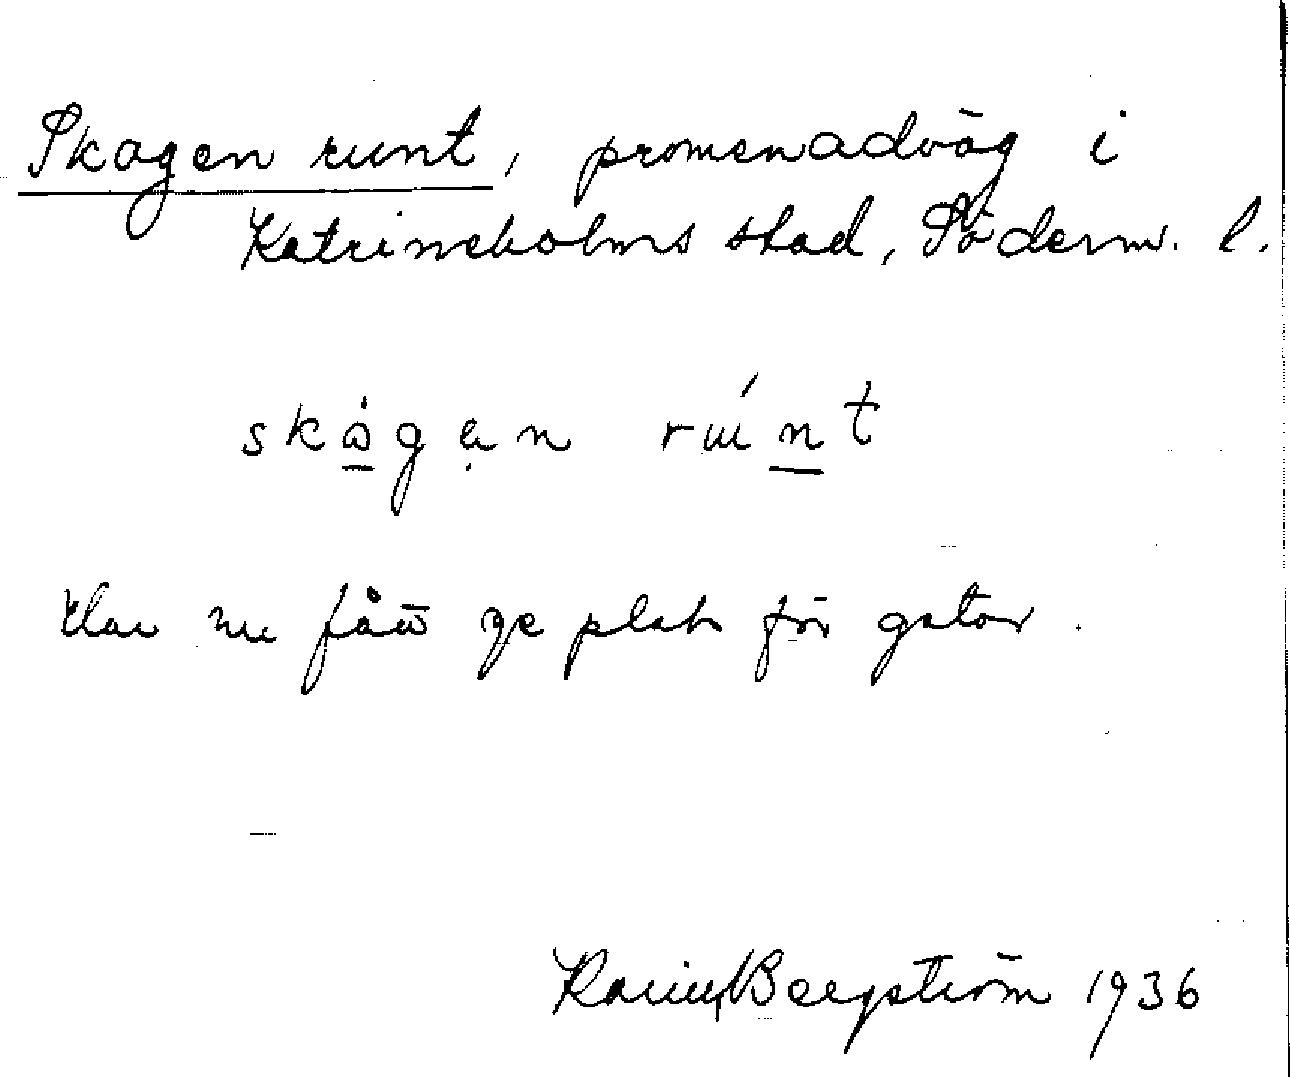 Skogen runt, promenadväg i
Katrineholms stad, Söderm. l.
skogen runt
Har nu fått ge plats för gator.
Karin Bergström 1936